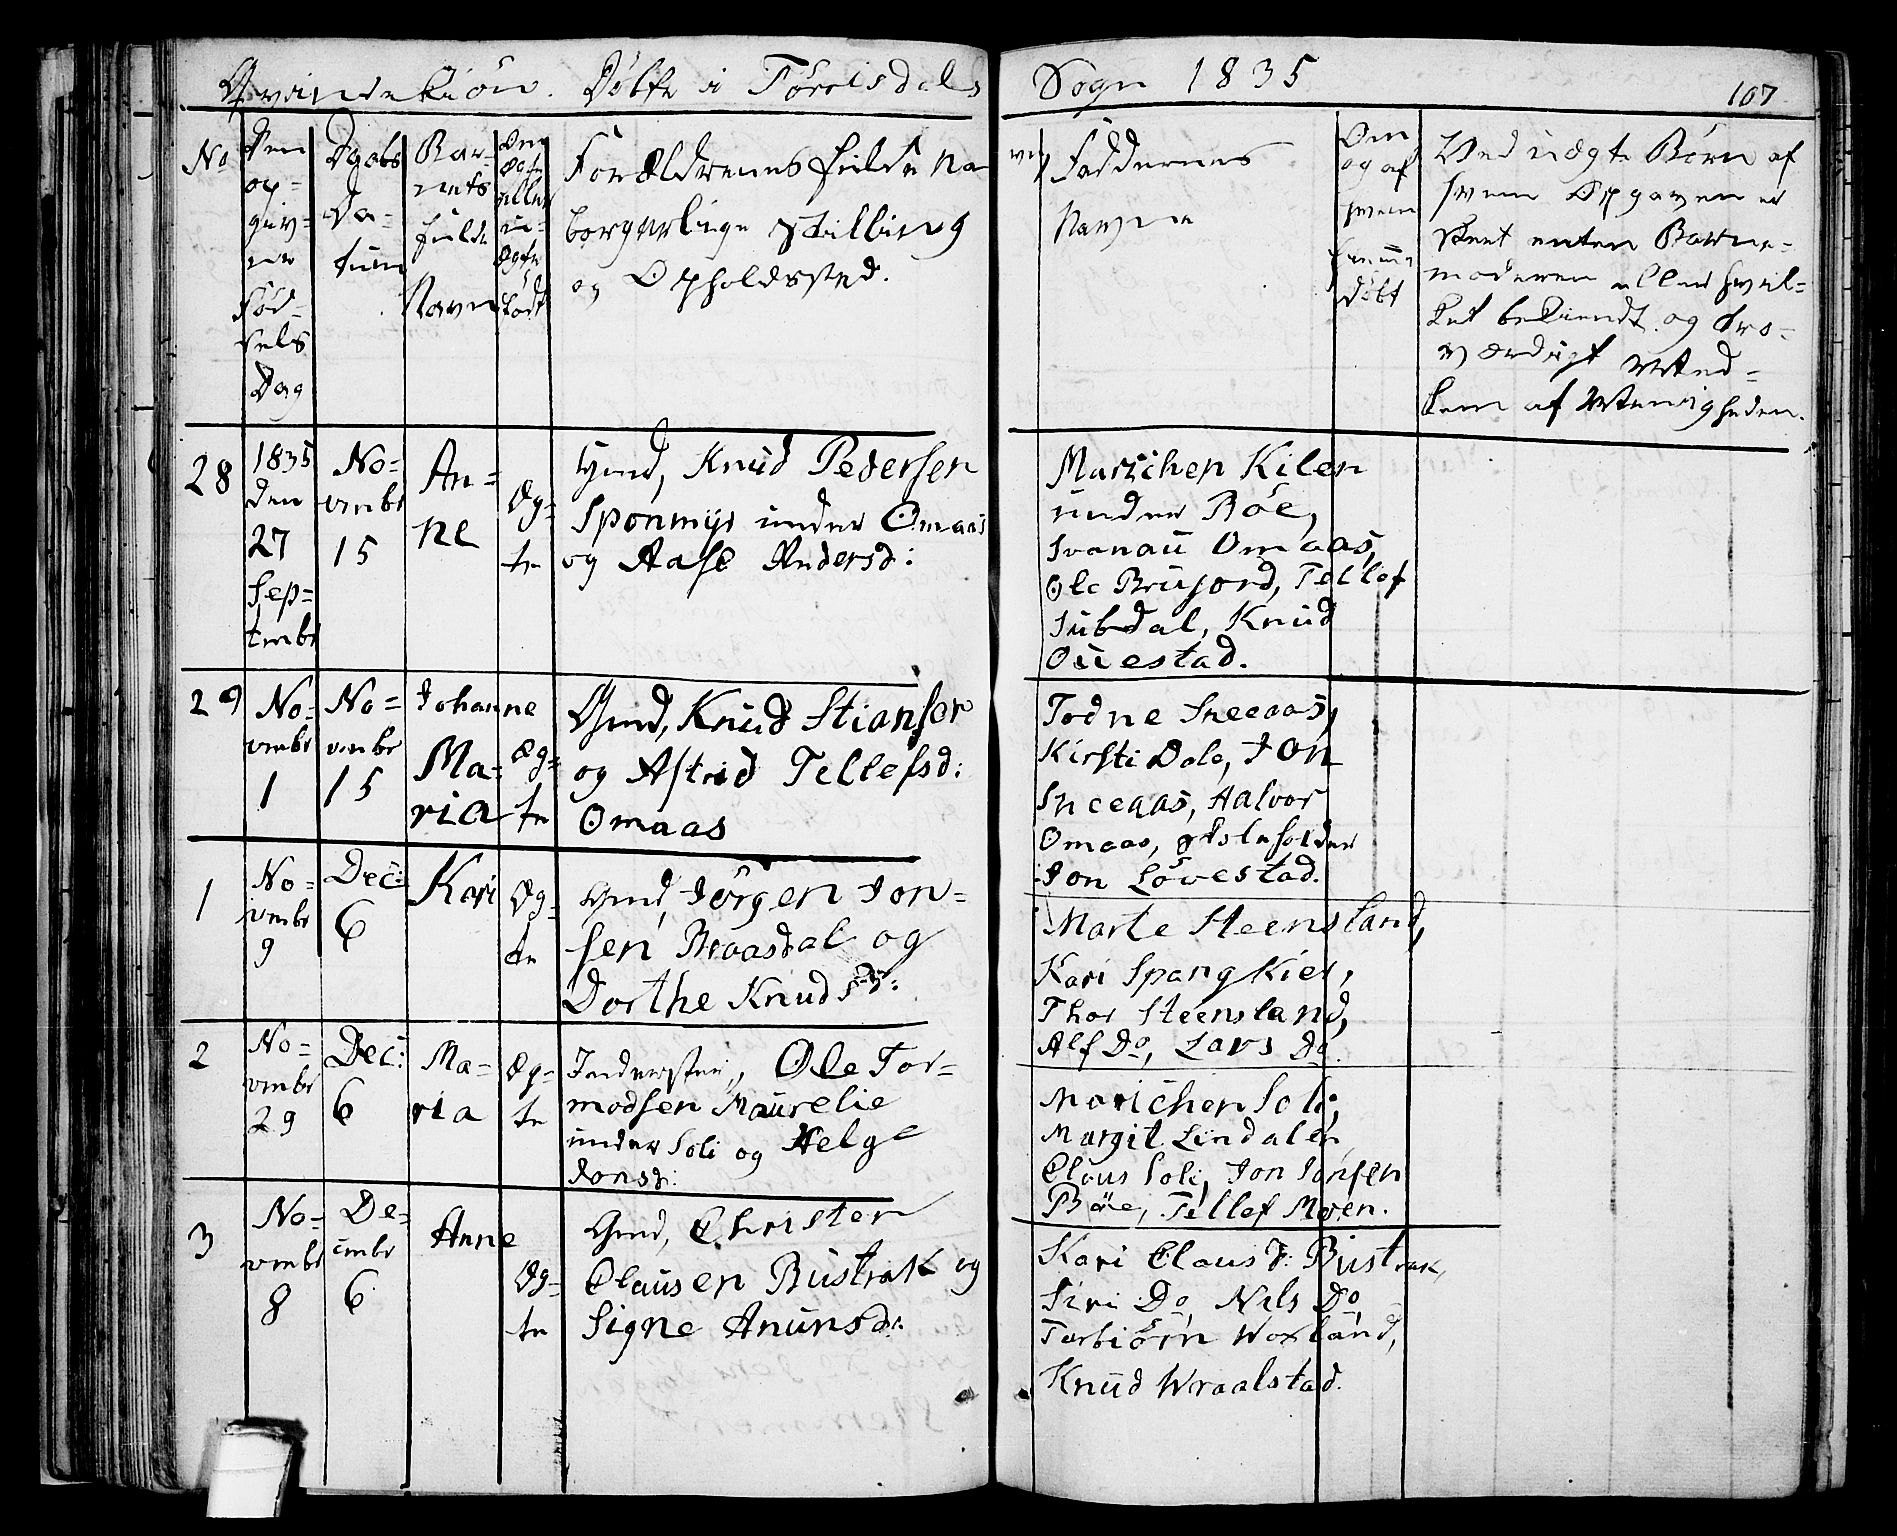 Qvindekiön. Döbte i Törrisdals Sogn 1835
107
No
Den
op-
giv-
ne
Fød-
sels
Dag
Daabs
Da-
tum
Bar-
nets
fulde
Navn
Om
Ægte
eller
u-
Ægte
født
Forældrenes fulde Navn
borgerlige Stilling
og Opholdssted.
Faddernes
Navne
Om
og af
hvem
hiemme
döbt
Ved uægte Börn af
hvem Opgaven er
skeet enten Barne-
moderen eller hvil-
ket bekiendt og tro-
værdigt Med-
lem af Menigheden.
28
1835
den
27
Sep-
tmbr
No-
vmbr
15
An-
ne
Æg-
te
Gmd, Knud Pedersen
Sponmyr under Omaas
og Aase Andersd:
Marichen Kilen
under Böe,
Svanau Omaas,
Ole Brusord, Tellef
Subdal, Knud
Ouestad.
29
No-
vmbr
1
No-
vmbr
15
Johanne
Ma-
ria
Æg-
te
Gmd, Knud Stiansen
og Astrid Tellefsd:
Omaas
Todne Sneeaas,
Kirsti Dale, Jon
Sneeaas, Aalvor
Omaas,
Jon Lövestad.
1
No-
vmbr
9
Dec:
6
Kari
Æg-
te
Gmd, Jörgen Jon-
sen Braasdal og
Dorthe Knudsd:
Marte Steensland,
Kari Spangkier,
Thor Steensland,
Alf Do, Lars Do.
2
No-
vmbr
29
Dec:
6
Ma-
ria
Æg-
te
Inderster, Ole Tor-
modsen Maurelie
under Soli og Helge
Jonsd:
Marichen Soli,
Margit Lindalen
Claus Soli, Jon Jonsen
Böe, Tellef Moen.
3
No-
vmbr
8
De-
cmbr
6
Anne
Æg-
te
Gmd, Christen
Clausen Bustrak og
Signe Anunsd:
Kari Claus d: Bustrak,
Siri Do, Nils Do,
Torbiörn Woxland,
Knud Wraalstad.